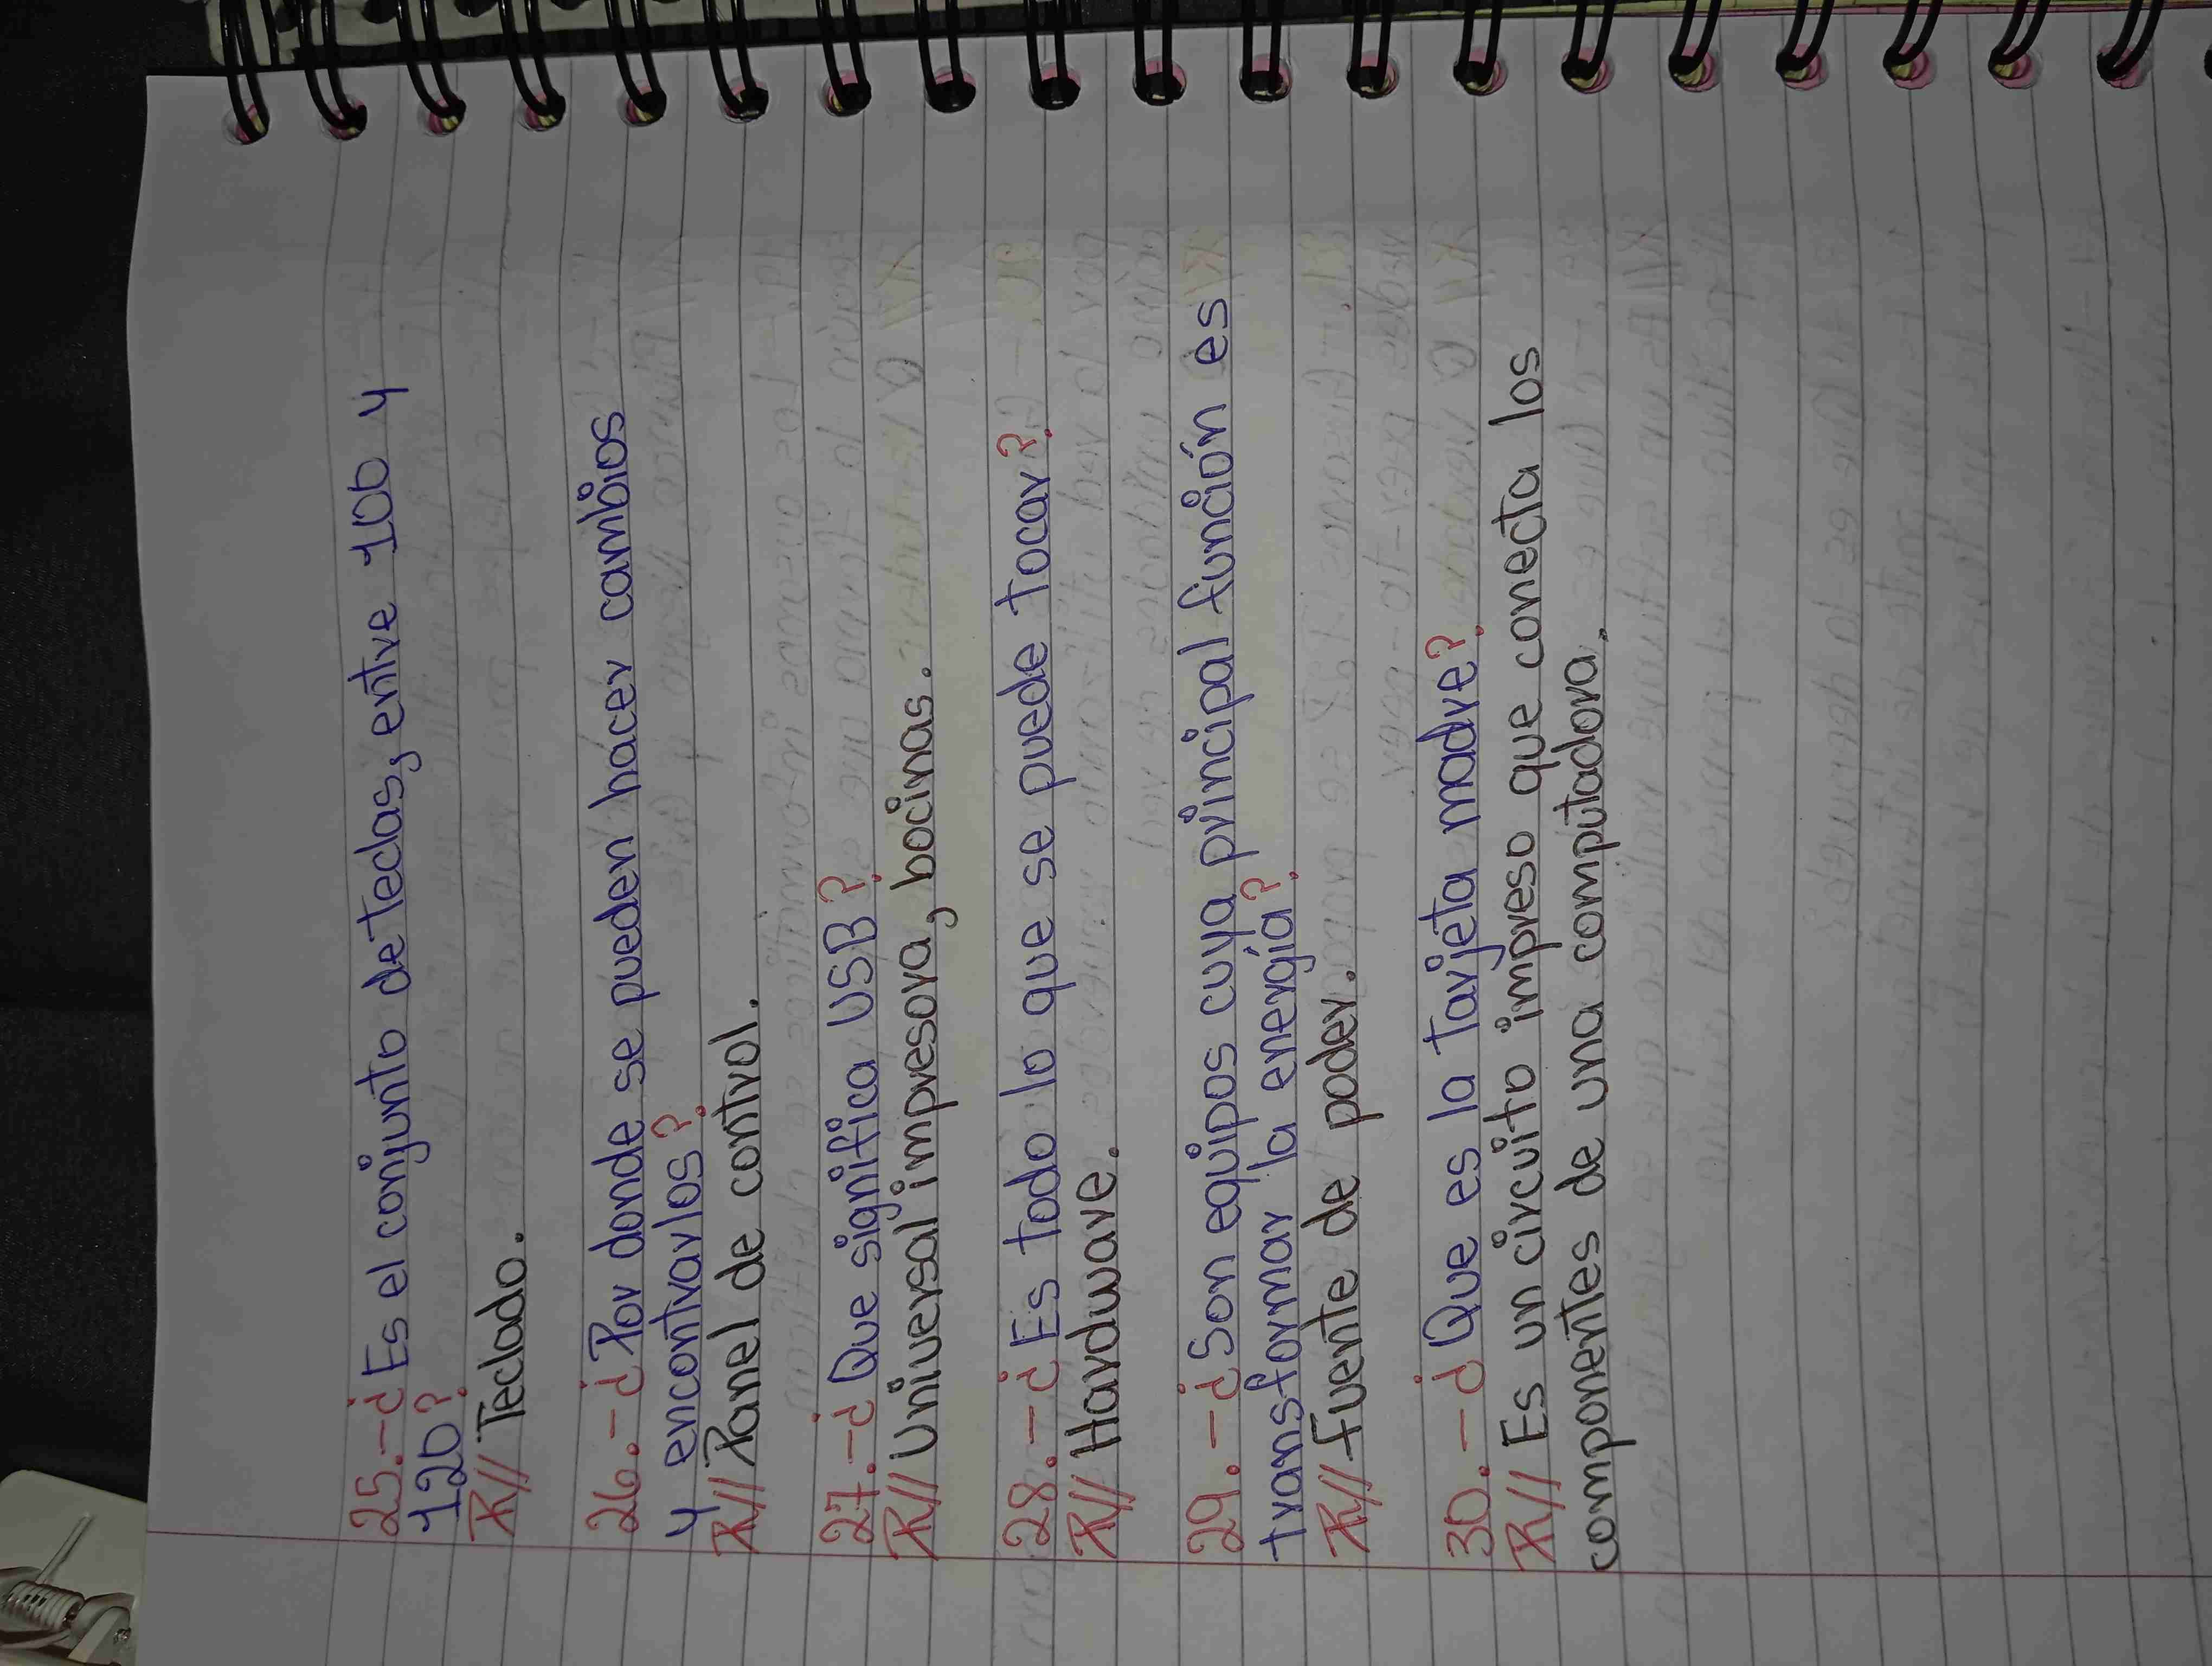 25.-¿Es el conjunto de teclas, entre 100 y
120?
R// Teclado.
26.-¿Por donde se pueden hacer cambios
y encontrarlos?
R// Panel de control.
27.-¿Que significa USB?
R// Universal impresora, bocinas.
28.-¿Es todo lo que se puede tocar?
R// Hardware.
29.-¿Son equipos cuya principal función es
transformar la energía?
R// Fuente de poder.
30.-¿Que es la tarjeta madre?
R// Es un circuito impreso que conecta los
componentes de una computadora.